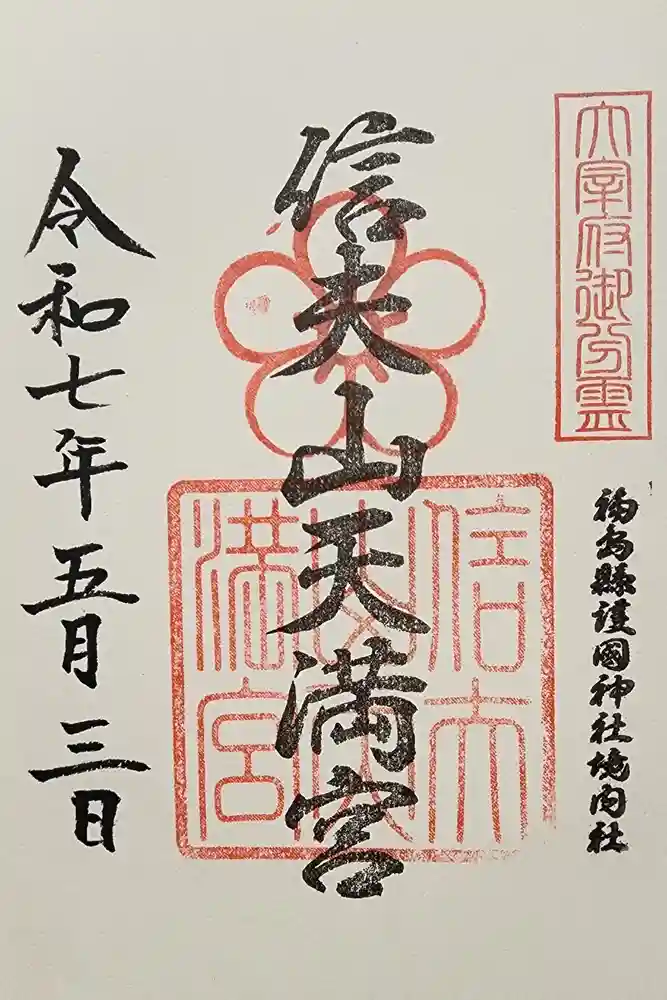 大宰府御分霊
福島縣護國神社境内社
信夫山天満宮
信夫山天満宮
令和七年五月三日